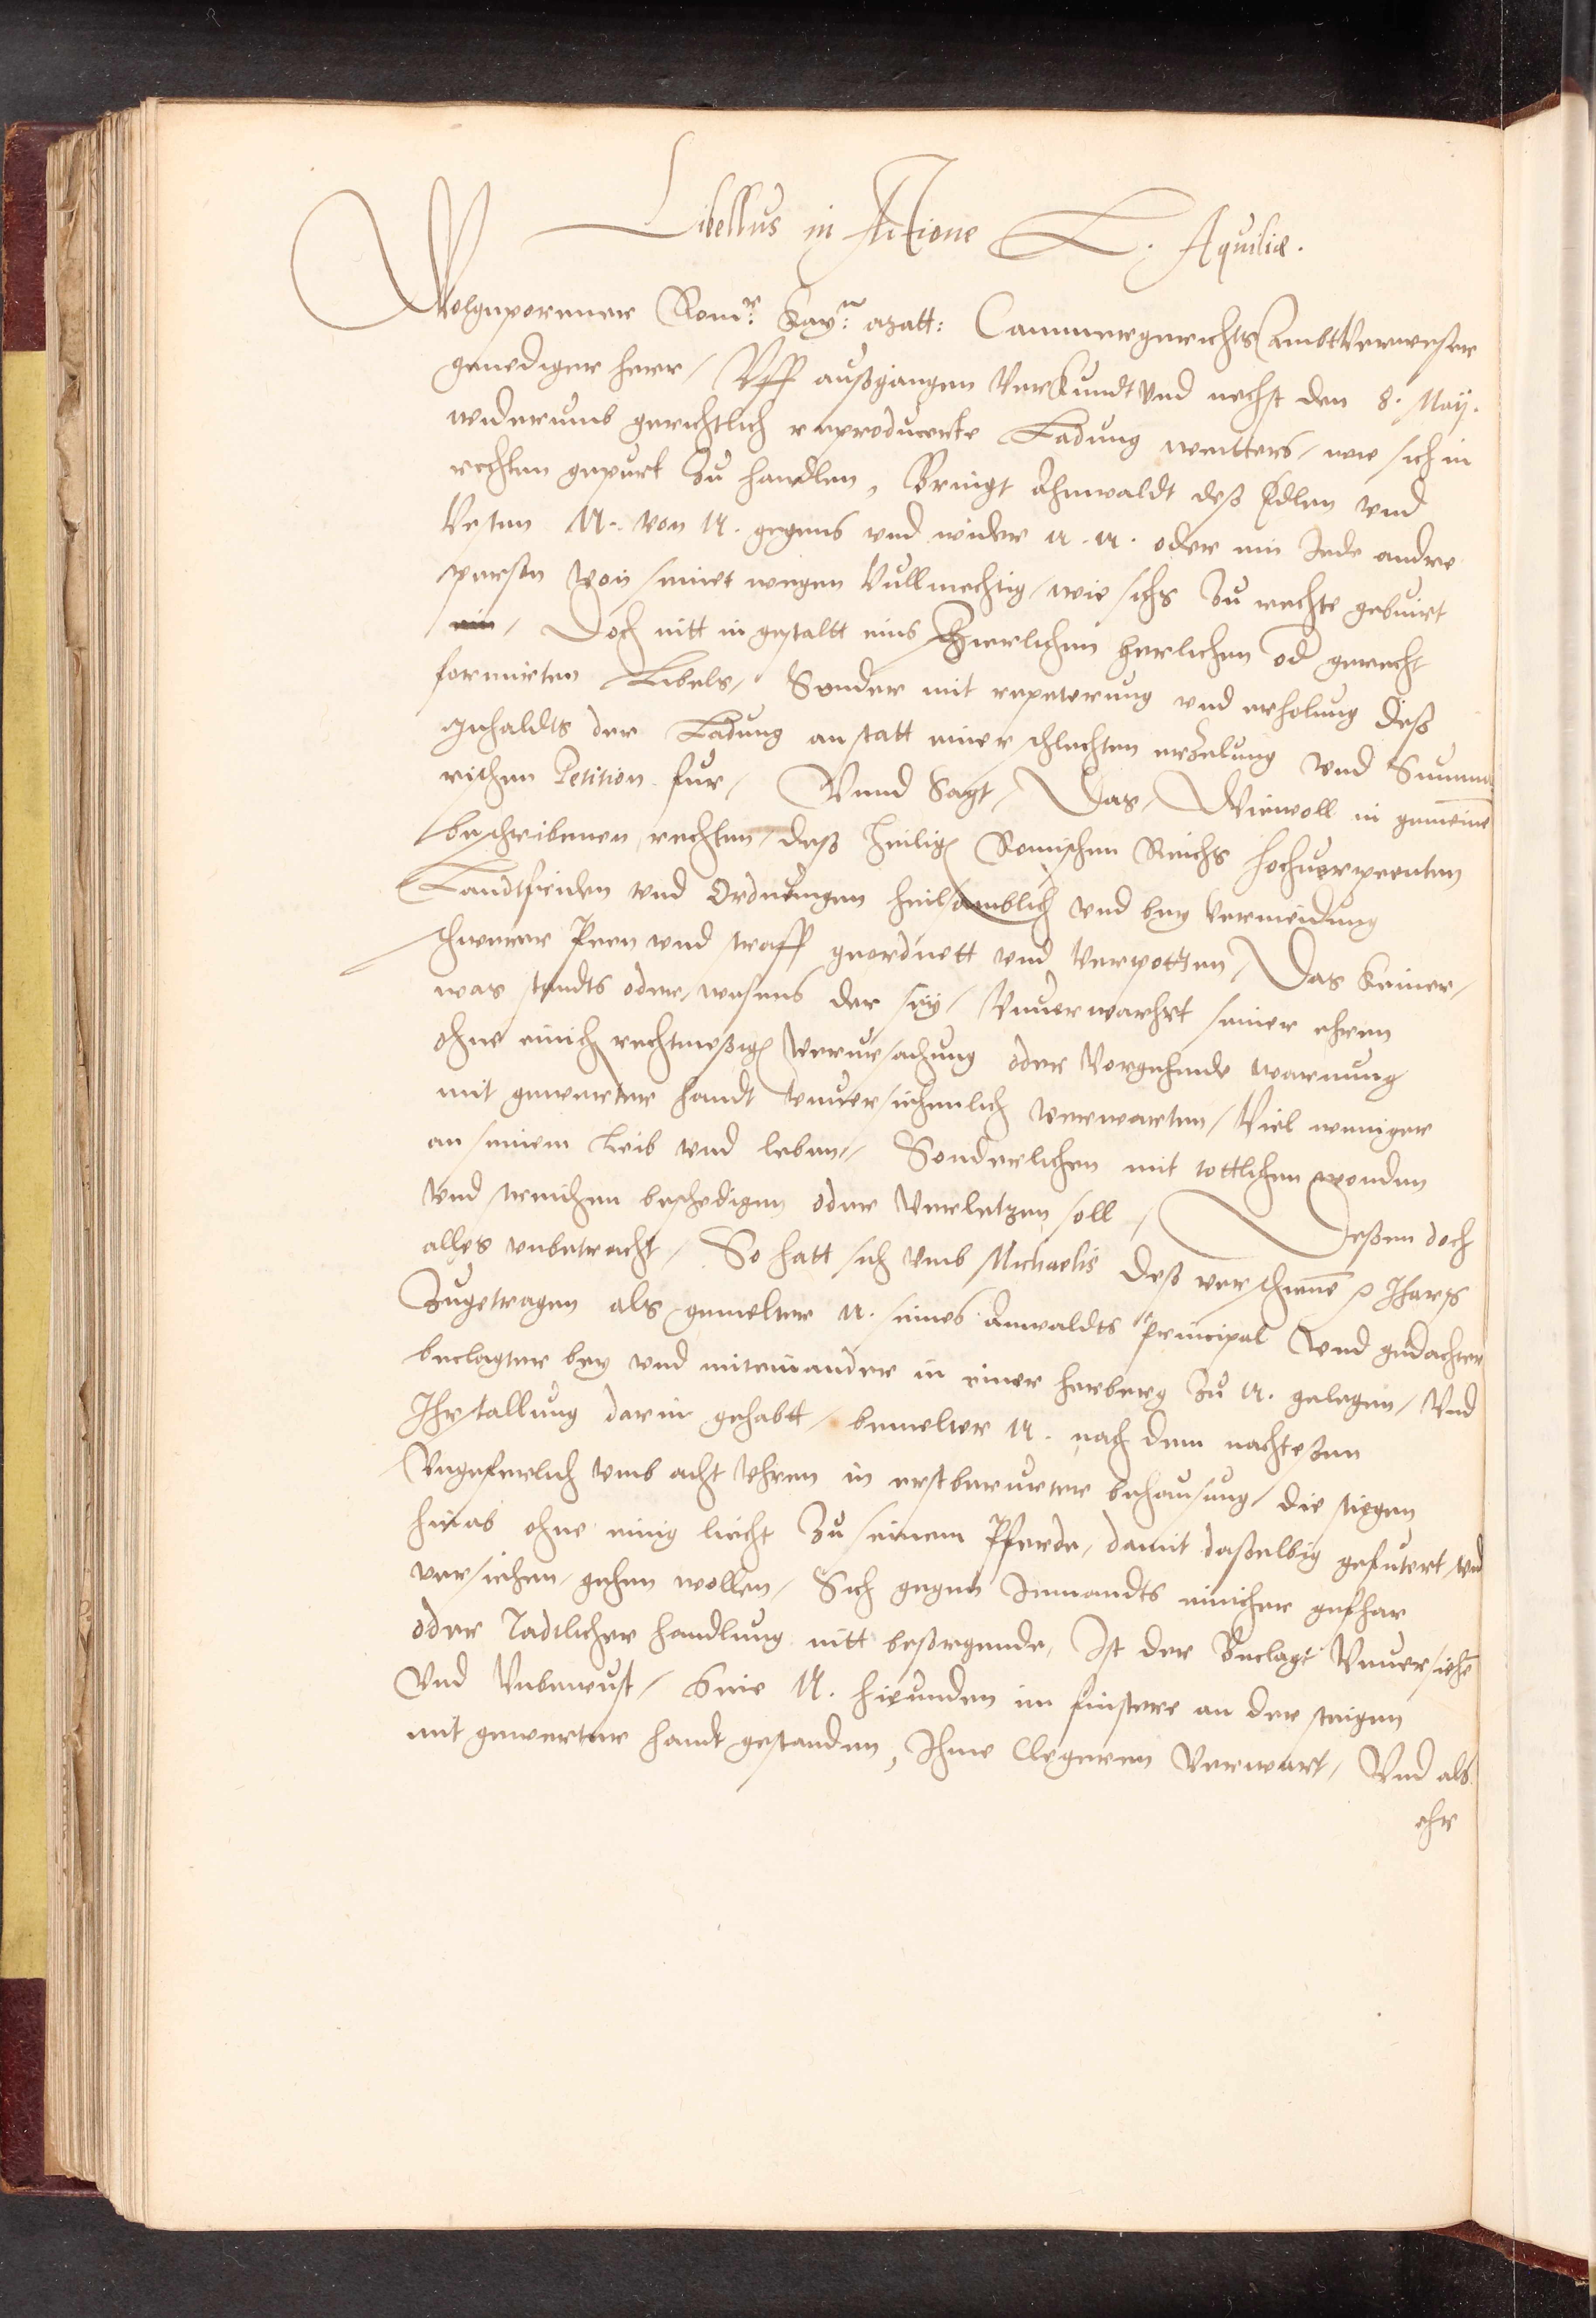 Libellus in Actione L. Aquiliæ.
Wolgeporener Rom: Kay: Matt: Cammergerichts AmbtVerweser
genediger herr / Vff außgangen Verkundt und nechst den 8. Maij.
widerumb gerichtlich reproducerte Ladung weitters / wie sich in
rechten gepurt zu handlen, Bringt Ahnwaldt deß Edlen vnd
Vesten N. von N. gegens vnd wider N. N. oder ein Jede andre
person von seinet wegen Vullmechtig / wie sichs zu rechte gebuirt
ein / Doch nitt in gestaltt eins Zierlichen herlichen od gerecht
formirten Libels / Sonder mit repeterung vnd erholung deß
Jnhaldts der Ladung anstatt einer schlechten erzelung vnd Summa
rischen Petition fur / Vnnd Sagt / Das / Wiewoll in gemeine
beschribenen rechten / deß heilig Romischen Reichs hochuerpeenten
Landtfriden vnd Ordnungen heilsamblich vnd bey vermeidung
schwerer Peen vnd straff geordnett vnd verpotten / Das keiner /
was standts oder wesens der sey / Vnuerwarht seiner ehren
ohne einich rechtmeßig verursachung oder Vorgehende warnung
mit gewerter handt vnuersichenlich verwarten / Viel weniger
an seinem Leib vnd leben / Sonderlichen mit tottlichen wonden
vnd streichen beschedigen oder Verletzen soll / Deßen doch
alles vnbetracht / So hatt sich vmb Michaelis deß verschiene Jhars
Zugetragen als gemelter N. seines Anwaldts Principal vnd gedachter
beclagter bey vnd miteinander in einer herberg zu N. gelegen / Vnd
Jhr stallung darin gehabtt / bemelter N. nach dem nachteßen
Vngeferlich vmb acht vhren in erstberurter behausung / die stiegen
hinab ohne einig liecht zu seinem Pferde / damit daßelbig gefutert / vnd
versiehen / gehen wollen / Sich gegen Jemandts einicher gefhar
oder Tadtlicher handlung nitt beßorgende / Jst der Beclagt Vnuersiehe
Vnd Vnbewust / N. hieunden im finstere an der steigen
mit gewerter handt gestanden, Jhme Clegeren Verwart / Vnd als
ehr